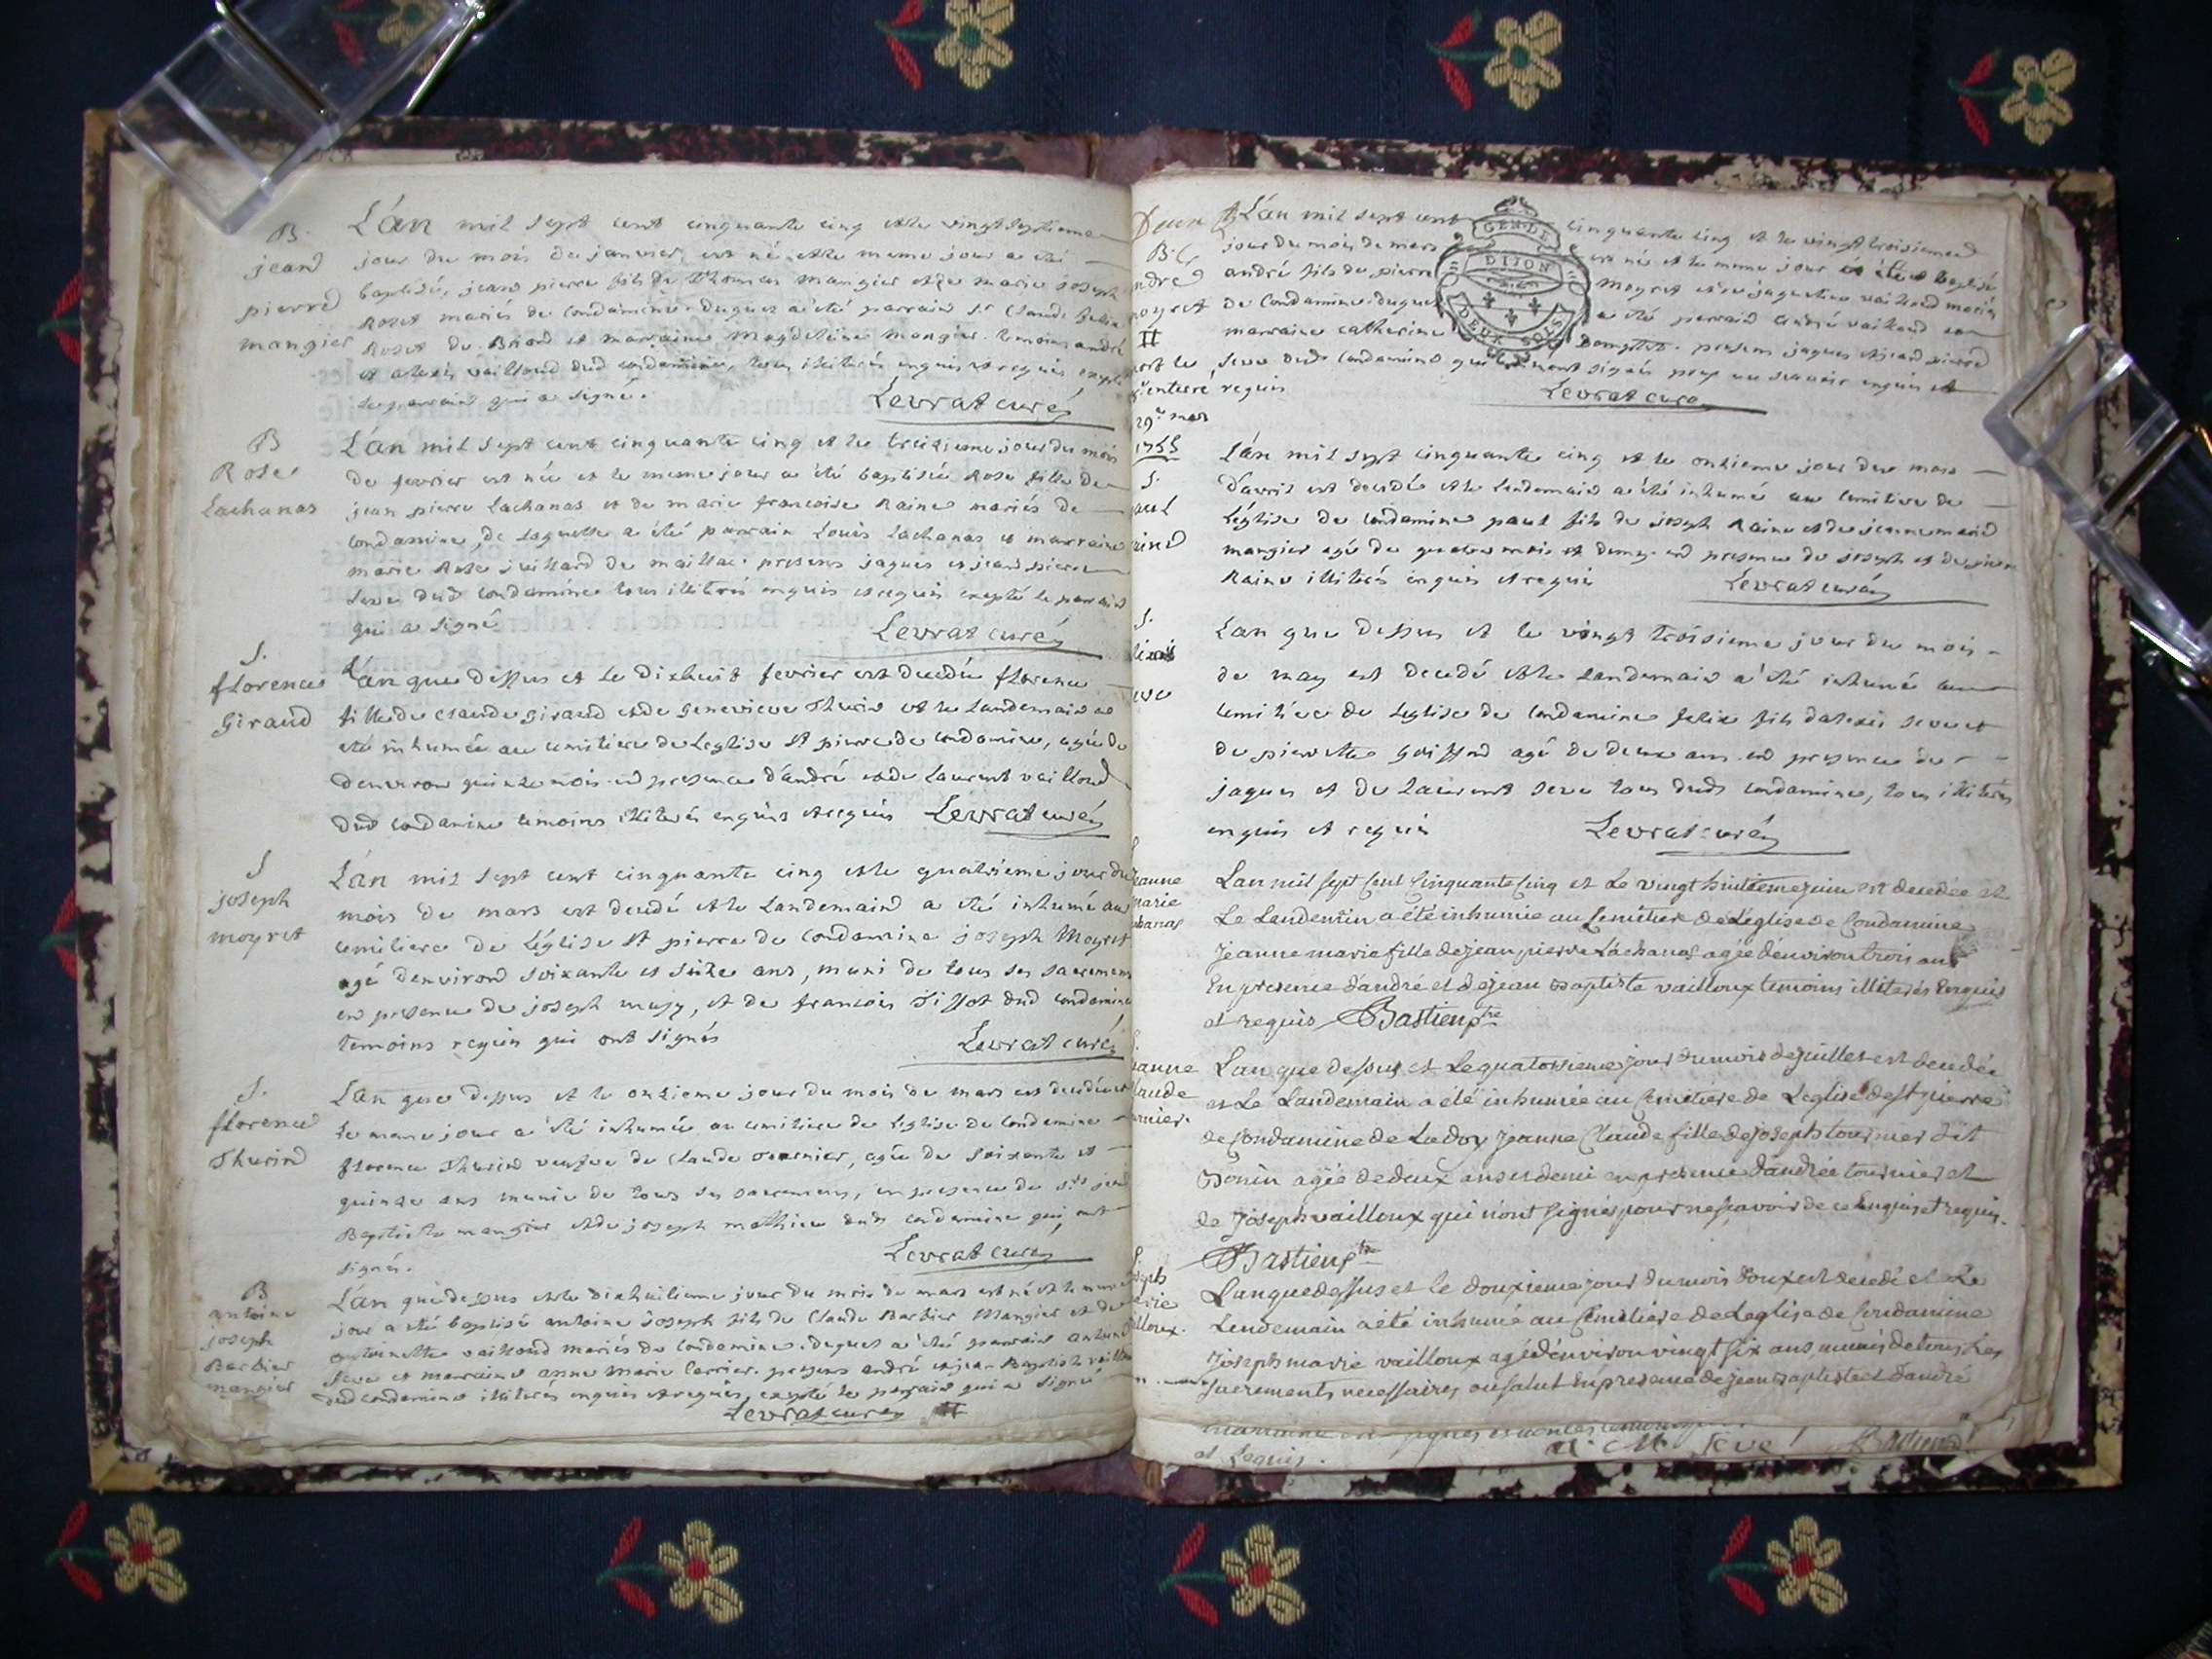 B.
jean
pierre
mangier
L'an mil sept cent cinquante cinq et le vingt septieme
jour du mois de janvier est né et le meme jour a été
baptisé, jean pierre fils de Thomas mangier et de marie joseph
Rozet mariés de condamine. duquel a été parrain Sr Claude
Rozet du et marraine Magdeleine mangier. temoins andré
et alexis vailloud dud condamine, tous illiterés enquis et requis excepté
le parrain qui a signé.
Levrat curé
B
Rose
Lachanas
L'an mil sept cent cinquante cinq et le treizieme jour du mois
de fevrier est née et le meme jour a été baptisée Rose fille de
jean pierre Lachanas et de marie francoise Raine mariés de
condamine, de laquelle a été parrain Louis Lachanas et marraine
marie Rose juillard de maillac. presens jaques et jean pierre
seve dud condamine tous illiterés enquis et requis excepté le parrain
qui a signé
Levrat curé
S.
florence
Giraud
L'an que dessus et le dixhuit fevrier est decedée florence
fille de claude giraud et de genevieve Thurin et le landemain a
été inhumée au cemitiere de Leglise St pierre de condamine, agée de
denviron quinze mois en presence d'andré et de Laurent vailloud
dud condamine temoins illiterés enquis et requis Levrat curé
S
joseph
moyret
L'an mil sept cent cinquante cinq et le quatrieme jour du
mois de mars est decedé et le Landemain a été inhumé au
cemitiere de Léglise St pierre de condamine joseph Moyret
agé denviron soixante et seize ans, muni de tous ses sacremens
en presence de joseph et de francois Tissot dud condamine
temoins requis qui ont signés
Levrat curé
S.
florence
Thurin
L'an que dessus et le onzieme jour du mois de mars est decedée et
Le meme jour a été inhumée au cemitiere de Léglise de Condamine
florence Thurin veufve de Claude Tournier, agée de soixante et
quinze ans munie de tous ses sacremens, en presence de Srs jean
Baptiste mangier et de joseph mathieu dud condamine qui ont
signés.
Levrat curé
B
antoine
joseph
Barbier
mangier
L'an que dessus et le dixhuitieme jour du mois de mars est né et le meme
jour a été baptisé antoine joseph fils de Claude Barbier Mangier et de
antoinette vailloud mariés de Condamine. duquel a été parrain antoine
Seve et marraine anne marie Carrier. presens andré et jean Baptiste vailloud
dud condamine illiterés enquis et requis, excepté le parrain qui a signé
Levrat curé
B.
ndré
moyret
L'an mil sept cent cinquante cinq et le vingt troisieme
jour du mois de mars est né et le meme jour a été baptisé
andré fils de pierre Moyret et de jaqueline vailloud mariés
de Condamine. duquel a été parrain andré vailloud et
marraine catherine presens jaques et jean pierre
seve dud Condamine qui n'ont signés pour ne scavoir enquis et
requis
Levrat curé
GEN DE
DIJON
DEUX SOLS
mort le
enterré
29e mars
1755
S.
paul
raine
L'an mil sept cinquante cinq et le onzieme jour du mois
d'avril est decedé et le Landemain a été inhumé au cemitiere de
Léglise de Condamine paul fils de joseph Raine et de jeanne marie
mangier agé de quatre mois et demy. en presence de joseph et de pierre
Raine illiterés enquis et requis Levrat curé
S.
seve
L'an que dessus et le vingt troisieme jour du mois
de may est decedé et le Landemain a été inhumé au
cemitiere de Leglise de Condamine felix fils d'alexis seve et
de pierrette goiffond agé de deux ans en presence de
jaques et de Laurent seve tous dud condamine, tous illiterés
enquis et requis Levrat curé
jeanne
marie
chanas
L'an mil sept cent cinquante cinq et le vingt huitieme juin est decedée et
Le Lendemin a été inhumée au cemetiere de Léglise de Condamine
Jeanne marie fille de jean pierre Lachanas agée d'environ trois ans
En presence d'andré et de jean Baptiste vailloux temoins illiterés Enquis
et requis Bastien ptre
jeanne
claude
tournier.
L'an que dessus et Le quatorzieme jour du mois de juillet est decedée
et Le Landemain a été inhumée au cemetiere de Leglise de St pierre
de Condamine de Ladoy Jeanne Claude fille de Joseph tournier dit
Bonin agée de deux ans et demi en presence d'andrée tournier et
de Joseph vailloux qui n'ont signés pour ne scavoir de ce Enquis et requis.
Bastien ptre
S.
joseph
marie
vailloux.
L'an que dessus et le douxieme jour du mois d'oux est decedé et Le
Lendemain a été inhumé au Cemetiere de Leglise de Condamine
Joseph marie vailloux agé d'environ vingt six ans, munis de tous Les
sacrements necessaires au salut En presence de jean Baptiste et d'andré
et Requis.
Seve Bastien